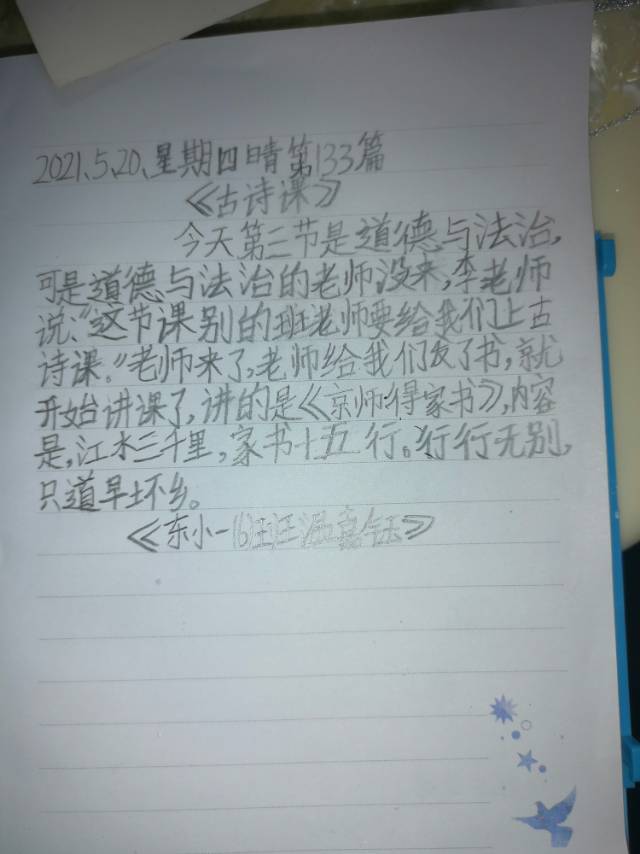 2021.5.20.星期四晴第133篇
《古诗课》
今天第三节是道德与法治,
可是道德与法治的老师没来,李老师
说:“这节课别的班老师要给我们上古
诗课。”老师来了,老师给我们发了书,就
开始讲课了,讲的是《京师得家书》,内容
是,江水三千里,家书十五行。行行无别,
只道早坏乡。
《东小一(6)班 嘉钰》